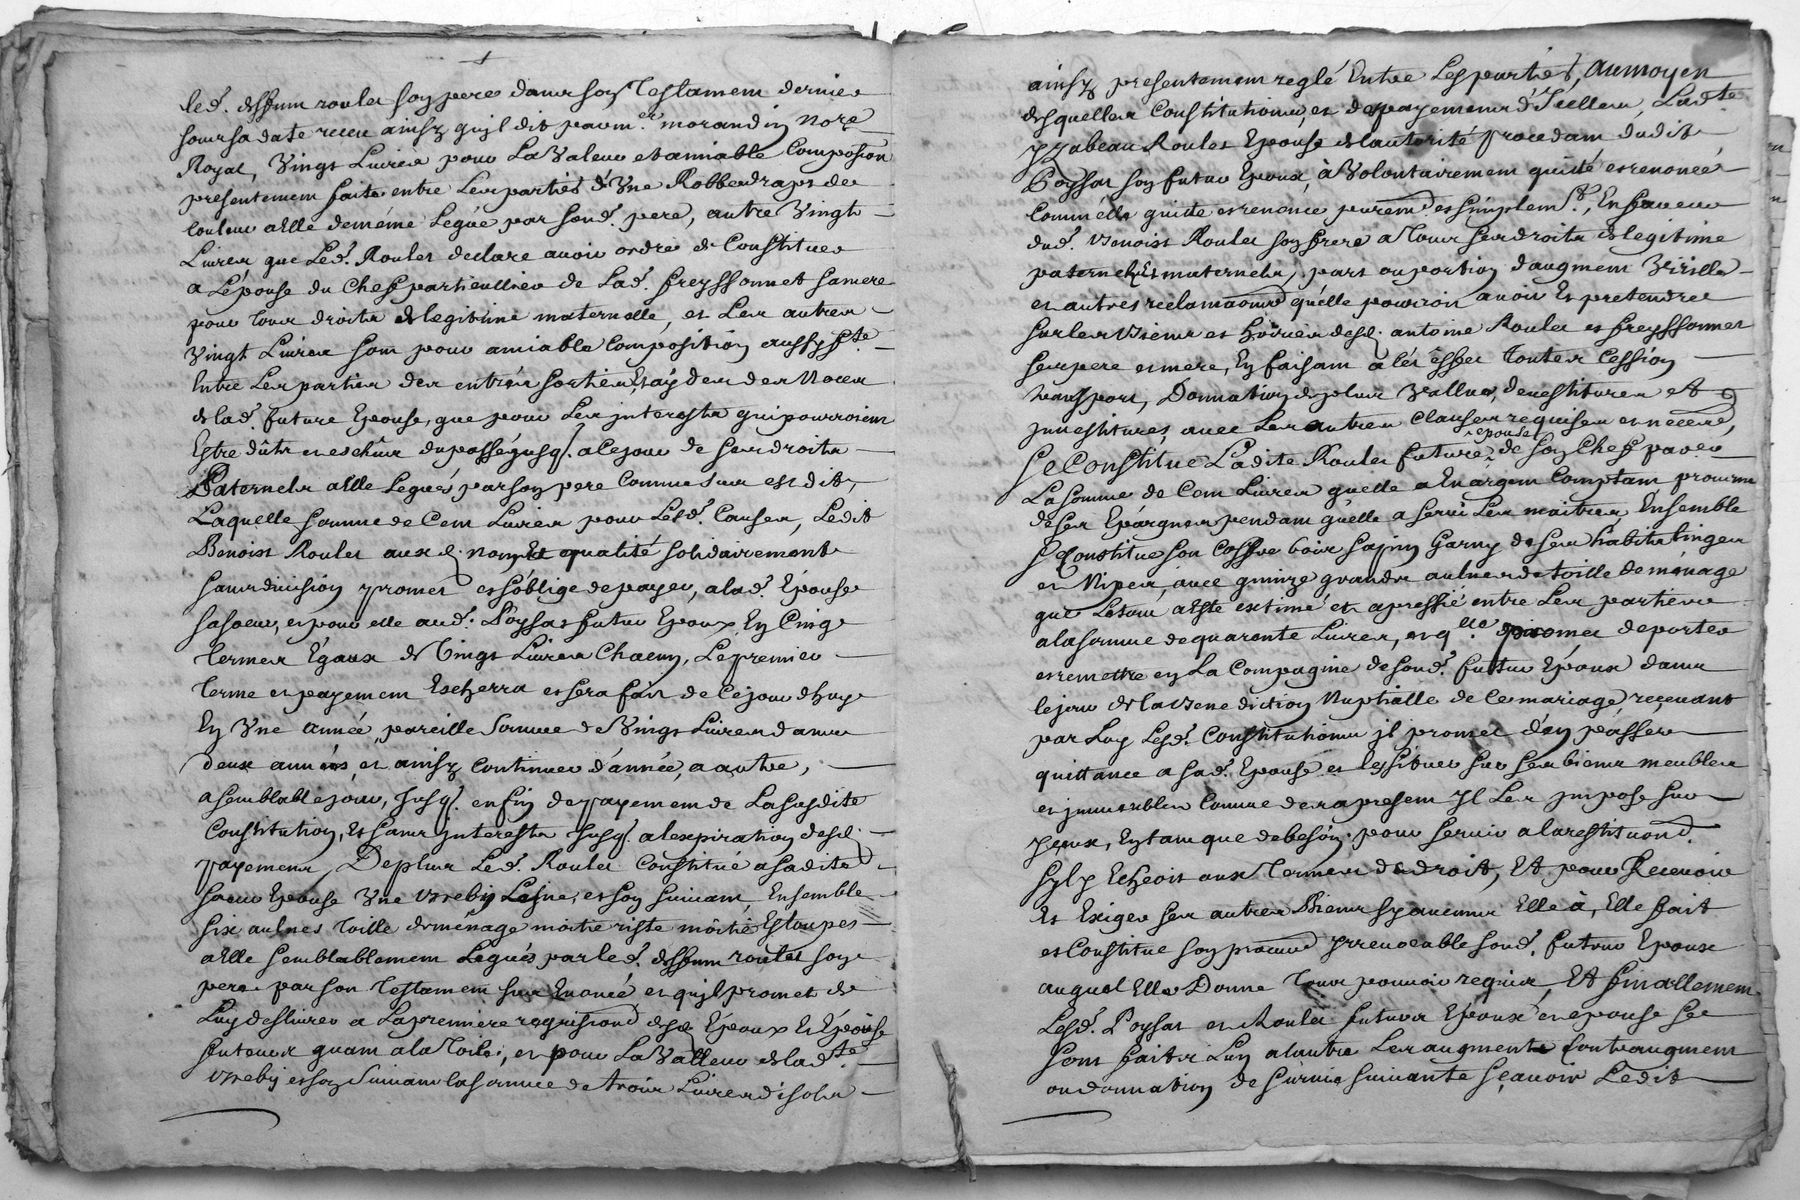 led. deffunt roulet son pere dans son Testament dernier
sous sa date receu ainsy qu'il dit par me. morandin nore.
Royal, Vingt Livres pour La Valeur et amiable Composion
presentement faite entre Les parties d'Vne Robbe draps de
couleur a Elle de meme Legué par sond. pere, autre Vingt
Livres que Led. Roulet declare avoir ordre de Constituer
a L'épouse du Chef particullier de Lad. freyssonnet sa mere
pour tous droits de legitime maternelle, et Les autres
Vingt Livres sont pour amiable Composition aussy fte.
Entre Les parties des entrées sorties Et aydes des Noces
de lad. future Epouse, que pour Les interests qui pourroient
Estre dûts et eschûs du passé jusq. a ce jour de ses droits
Paternels a Elle Legués par son pere Comme sus est dit,
Laquelle somme de Cent Livres pour Lesd. Causes, Ledit
Benoist Roulet aux d. noms Et qualité solidairement
sans division promet et s'oblige de payer, a lad. Epouse
sa soeur, et pour elle aud. Poyssat futur Epoux En Cinq
termes Egaux de Vingt Livres Chacun, Le premier
Terme et payement Escherra et sera fait de Ce jour d'huy
En Vne année, pareille Somme de Vingt Livres dans
deux années, et ainsy continuer d'année, a autre,
a semblable jour, Jusq. en fin de payement de La susdite
Constitution, Et sans interests Jusq. a l'expiration desd.
payements, De plus Led. Roulet Constitue a sa dite
soeur Epouse Vne Vrebis Laine, et son suivant, Ensemble
six aulnes Toille de ménage moitié riste moitié Estoupes
a Elle semblablement Legués par led. deffunt roulet son
pere par son Testament sus Enoncé et qu'il promet de
Luy deslivrer a La premiere requisiond desd. Epoux Et Epouse
futeurs quant a la Toile, et pour La Valleur de lad.te
Vrebis et son Suivant la somme de trois Livres dix sols
ainsy presentement reglé Entre Les parties, Au moyen
desquelles Constitutions, et de payements d'Icelles, Lad.te
yzabeau Roulet Epouse de l'autorité procedant dudit
Poyssat son futur Epoux, à Volontairement quitté et renoncé
Comm'elle quitte et renonce purem. et simplem.t, En faveur
dud. Benoist Roulet son frere a Tous ses droits de legitime
paternels Et maternels, part ou portion d'augment Virille
et autres reclamaons qu'elle pourroit avoir Et pretendre
sur les Biens et hoiries desd. antoine Roulet et freyssonnet
ses pere et mere, En faisant a les effet Toutes Cession
transport, Donnation de plus Vallues, devestitures et
investitures, avec Les autres Clauses requises et necess.
Se Constitue Ladite Roulet future epouse de son Chef pareo
La somme de Cent Livres qu'elle a En argent Comptant provenu
de ses Epargnes pendant qu'elle a servi Les maitres Ensemble
se Constitue son Coffre bois sapin Garny de ses habits linges
et Nipes, avec quinze grandes aulnes de toille de ménage
que Letout a Esté extimé et apressié entre Les parties
a la somme de quarante Livres, et q. elle promet de porter
et remettre en La Compagnie de sond. futur Epoux dans
le jour de la Benediction Nuptialle de Ce mariage, recevant
par Luy Lesd. Constitutions il promet d'en pásser
quittance a sad. Epouse et les situer sur ses biens meubles
et immeubles Comme des a present Il Les impose sur
yceux, En tant que de besoin, pour servir a la restitiond.
Sy ly Echeoit aux Termes de droit, Et pour Recevoir
Et Exiger ses autres Biens sy aucuns Elle à, Elle fait
et Constitue son procur. yrrevocable sond. futeur Epoux
auquel Elle Donne Tous pouvoir requis, Et finallement
Lesd. Poyssat et Roulet futurs Epoux et epouse se
sont faits L'un a l'autre Les augments Contraugment
ou donnation de survie suivante sçavoir Ledit